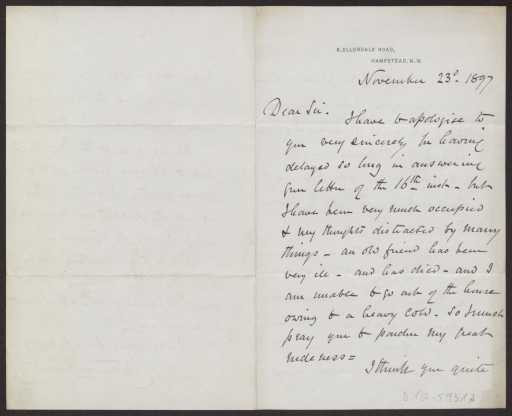 6, ELLERDALE ROAD,
HAMPSTEAD, N.W.
November 23d. 1897
Dear Sir. I have to apologise to
you very sincerely for having
delayed so long in answering
your letter of the 16th inst - but
I have been very much occupied
& my thoughts distracted by many
things - an old friend has been
very ill - and has died - and I
am unable to go out of the house
owing to a heavy cold. So I must
pray you to pardon my great
rudeness =
I think you quite